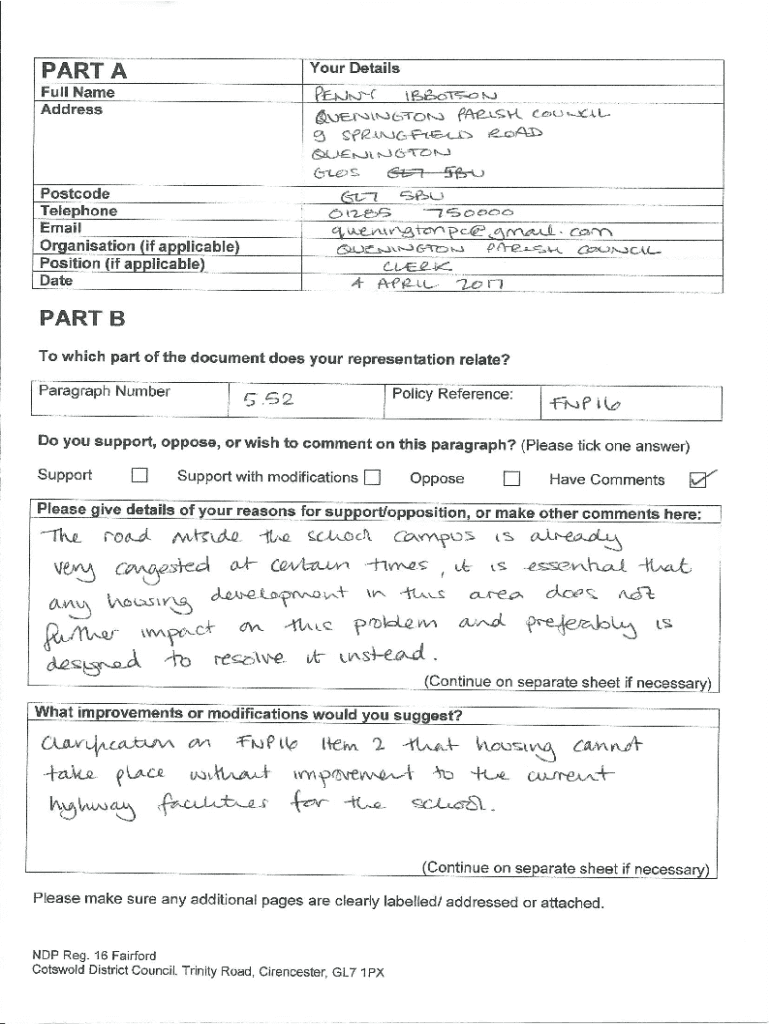 PART A Your Details
Full Name PENNY IBBOTSON
Address QUENINGTON PARISH COUNCIL
9 SPRINGFIELD ROAD
QUENINGTON
GLOS GL7 5BU
Postcode GL7 5BU
Telephone 01285 750000
Email queningtonpc@gmail.com
Organisation (if applicable) QUENINGTON PARISH COUNCIL
Position (if applicable) CLERK
Date 4 APRIL 2017
PART B
To which part of the document does your representation relate?
Paragraph Number 5.52 Policy Reference: FNP16
Do you support, oppose, or wish to comment on this paragraph? (Please tick one answer)
Support Support with modifications Oppose Have Comments
Please give details of your reasons for support/opposition, or make other comments here:
The road outside the school campus is already
very congested at certain times, it is essential that
any housing development in this area does not
further impact on this problem and preferably is
designed to resolve it instead.
(Continue on separate sheet if necessary)
What improvements or modifications would you suggest?
Clarification on FNP16 Item 2 that housing cannot
take place without improvement to the current
highway facilities for the school.
(Continue on separate sheet if necessary)
Please make sure any additional pages are clearly labelled/ addressed or attached.
NDP Reg. 16 Fairford
Cotswold District Council. Trinity Road, Cirencester, GL7 1PX